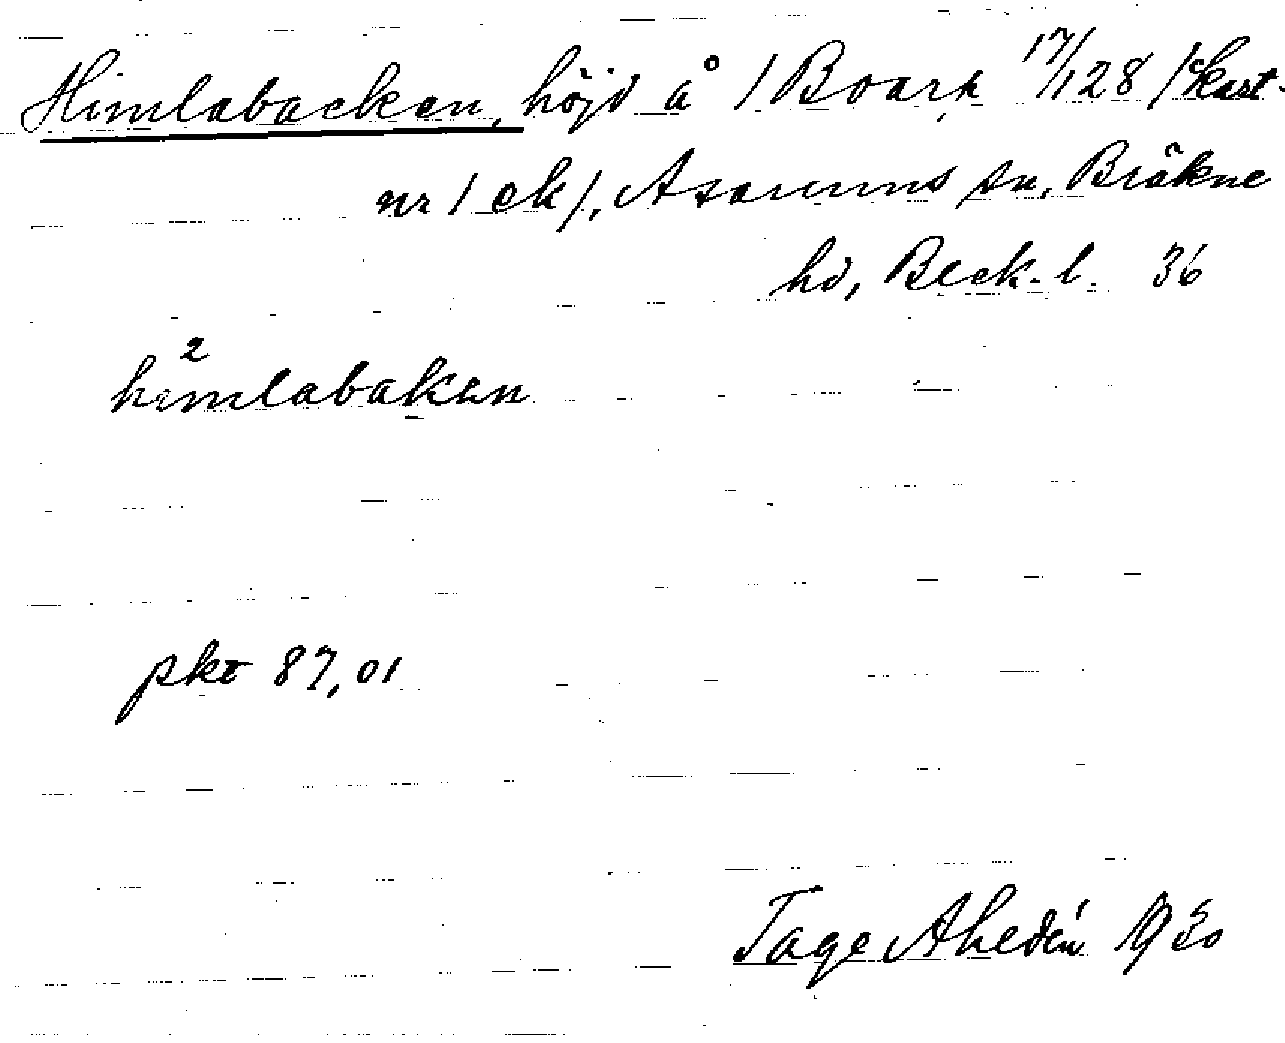 Himlabacken, höjd å /Boark 17/128 /kart-
nr / ek/, Asarums sn, Bräkne
hd, Bleck. l. 36
2
hemlabakan
pkt 87,01
Tage Ahldén 1930